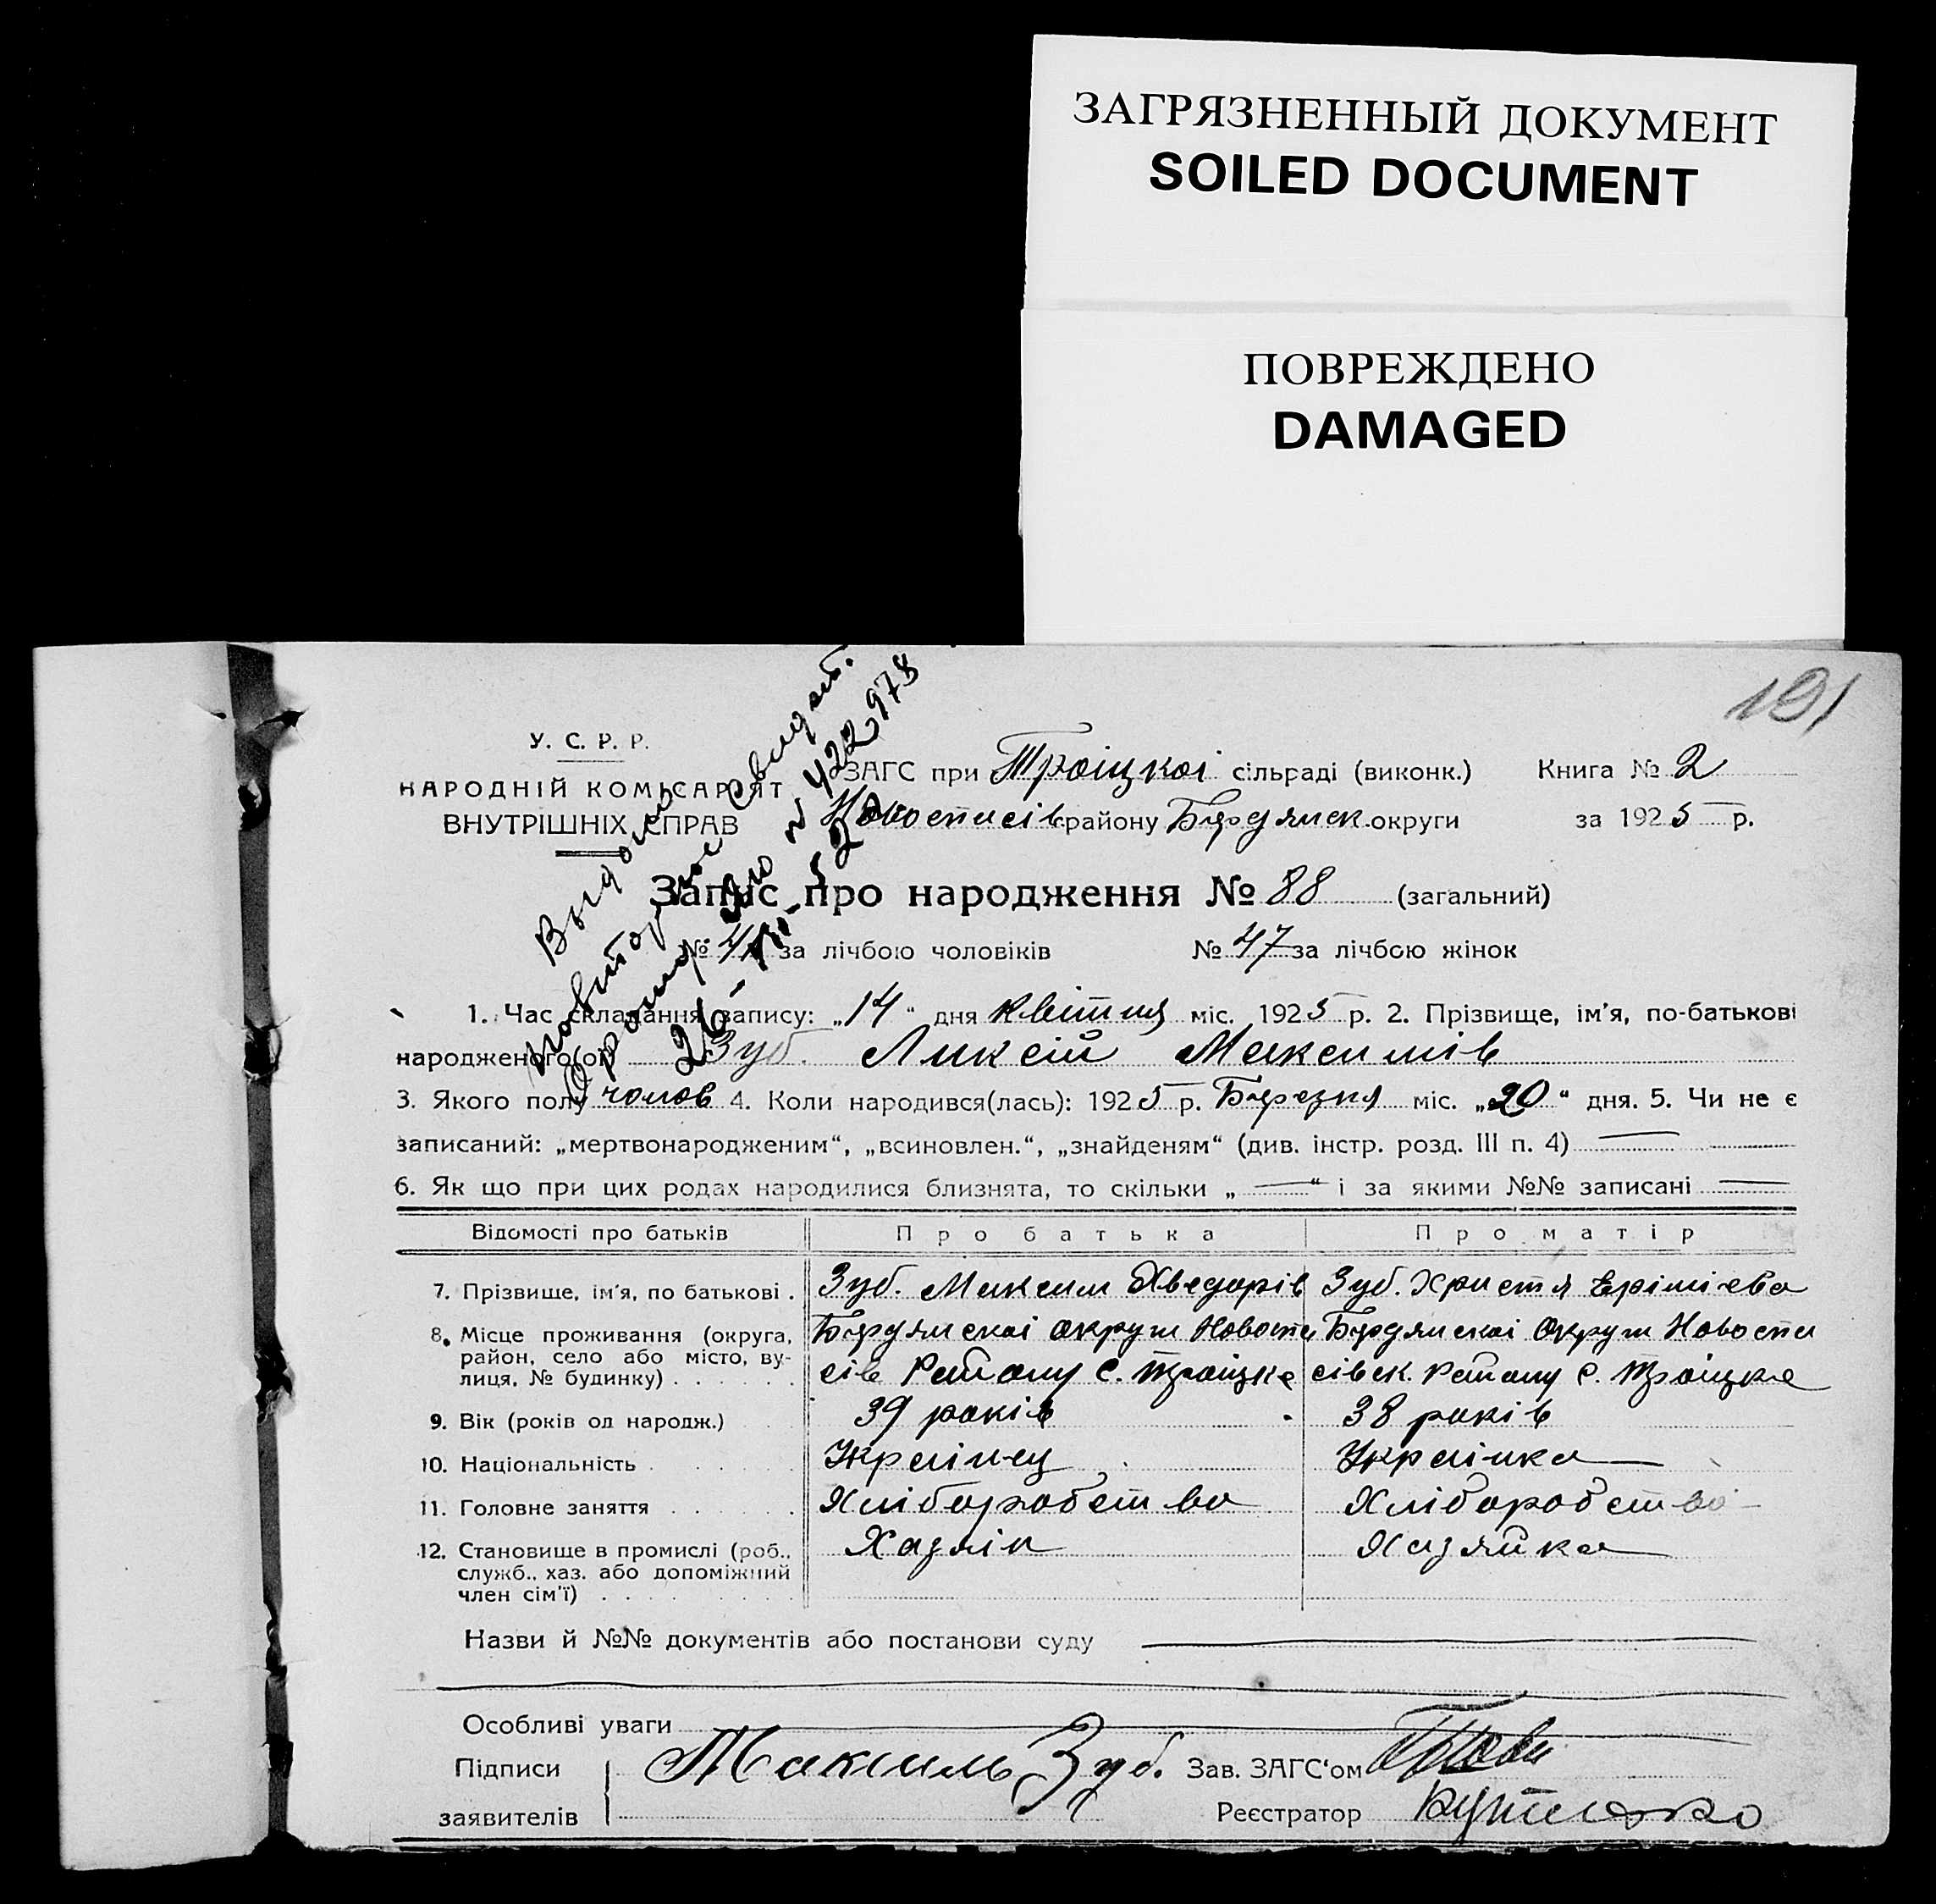 ЗАГРЯЗНЕННЫЙ ДОКУМЕНТ
SOILED DOCUMENT
ПОВРЕЖДЕНО
DAMAGED
191
У. С. Р. Р.
НАРОДНІЙ КОМІСАРІЯТ
ВНУТРІШНІХ СПРАВ
Выдано
повторное свидет.
№ 422978
ЗАГС при Троіцкоі сільраді (виконк.) Книга № 2
Новоспасів району Бердянск округи за 1925 р.
Запис про народження № 88 (загальний)
№ 41 за лічбою чоловіків № 47 за лічбою жінок
1. Час складання запису: „14“ дня квітня міс. 1925 р. 2. Прізвище, ім'я, по-батькові
народженого(ої) Зуб. Ликсій Максимів
3. Якого полу чолов 4. Коли народився(лась): 1925 р. Березня міс. „20“ дня. 5. Чи не є
записаний: „мертвонародженим“, „всиновлен.“, „знайденям“ (див. інстр. розд. III п. 4)
6. Як що при цих родах народилися близнята, то скільки „ “ і за якими №№ записані
Відомості про батьків Про батька Про матір
7. Прізвище, ім'я, по батькові . Зуб. Максим Хведорів Зуб. Христя Ерімієва
8. Місце проживання (округа, район, село або місто, вулиця, № будинку) Бердянскоі округи Новоспасів Району С. Троіцке Бердянскоі Округи Новоспасівск. Району С. Троіцке
9. Вік (років од народж.) 39 років 38 років
10. Національність Украінец Украінка
11. Головне заняття Хліборобство Хліборобство
12. Становище в промислі (роб., служб., хаз. або допоміжний член сім'ї) Хазяін Хазяйка
Назви й №№ документів або постанови суду
Особливі уваги
Підписи Максимъ Зуб. Зав. ЗАГС'ом
заявителів Реєстратор